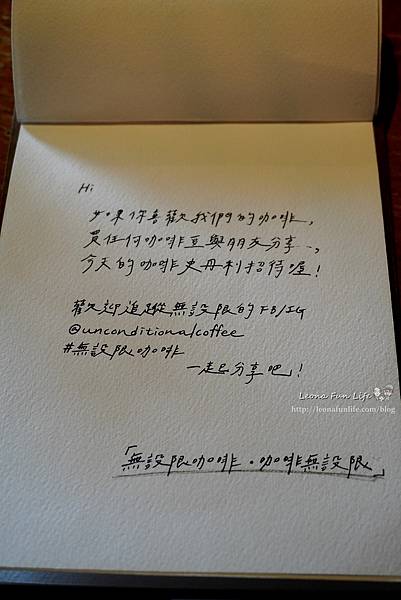 Hi
如果你喜歡我們的咖啡,
買任何咖啡豆與朋友分享…,
今天的咖啡史丹利招待喔!
歡迎追蹤無設限的FB/IG
@unconditionalcoffee
#無設限咖啡
一起分享吧!
Leona Fun Life
http://leonafunlife.com/blog
「無設限咖啡·咖啡無設限」